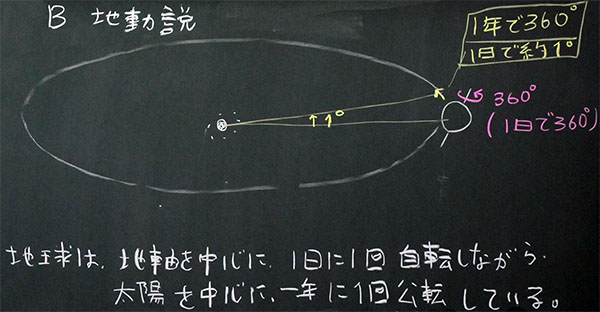 B 地動説
1年で360°
1日で約1°
360°
(1日で360°)
1°
地球は、地軸を中心に、1日に1回 自転しながら、
太陽を中心に、一年に1回公転している。